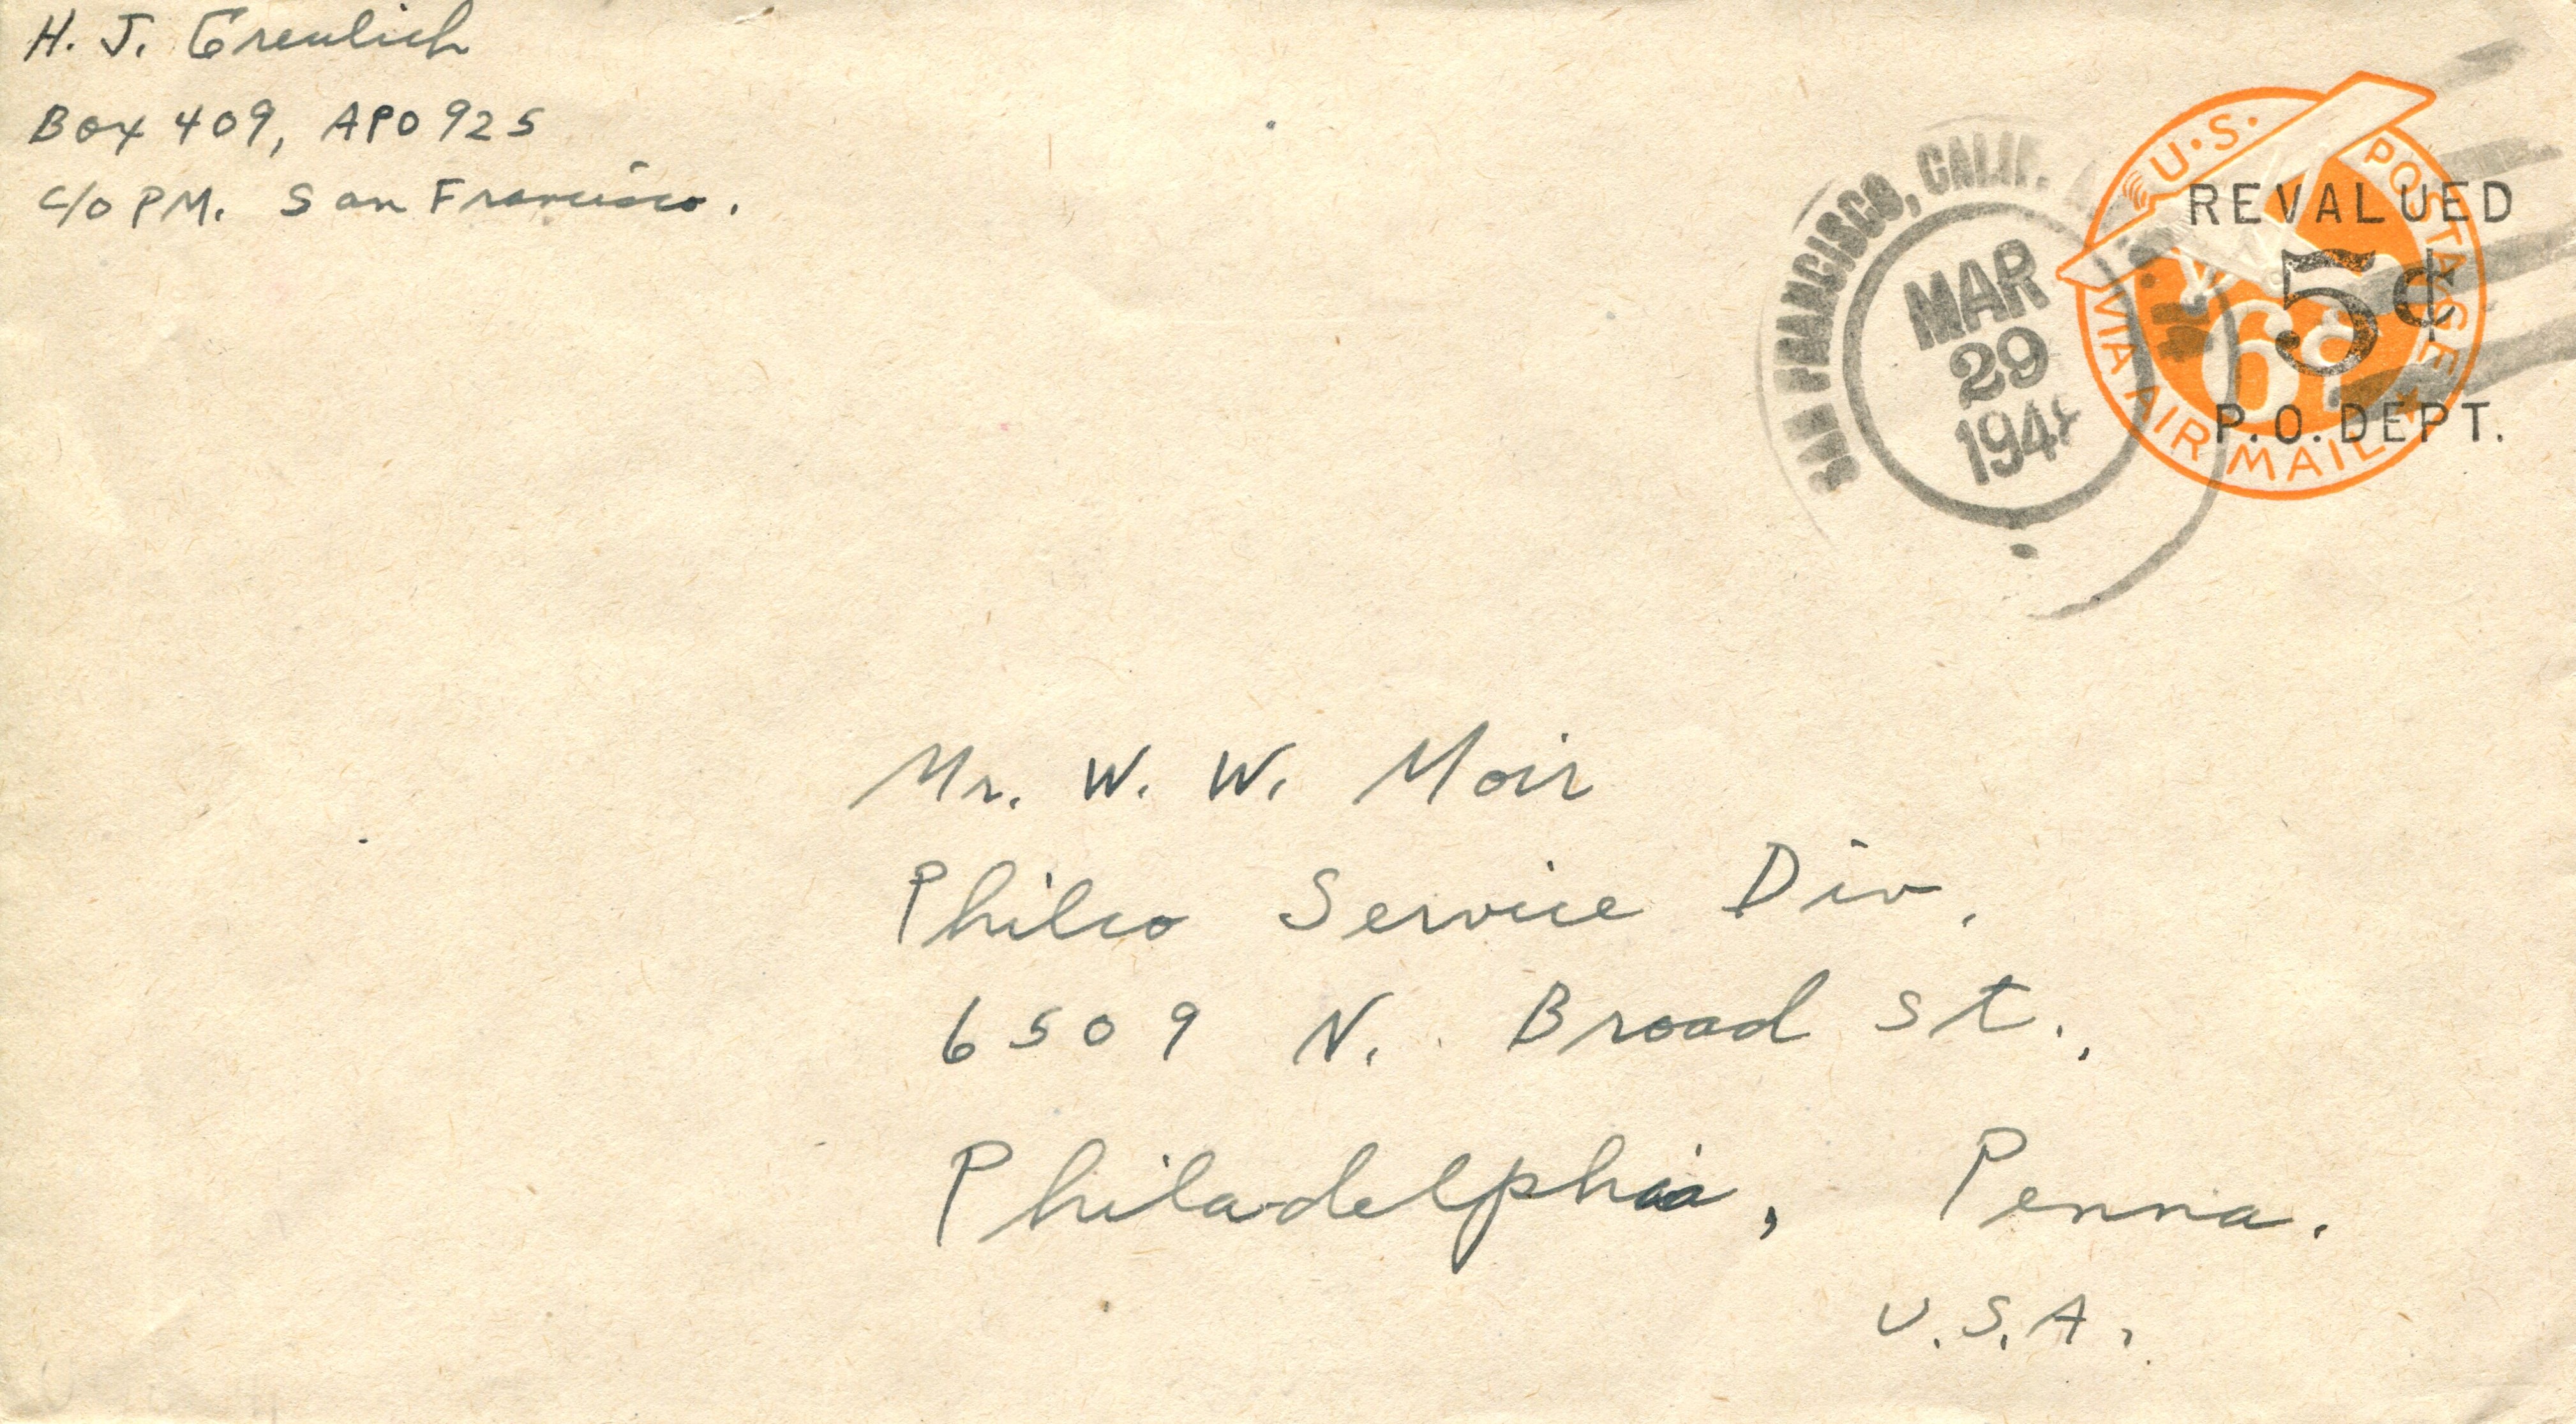 H. J. Greulich
Box 409, APO 925
c/o PM. San Francisco.
SAN FRANCISCO, CALIF.
MAR
29
194
U.S. POSTAGE
VIA AIR MAIL
6¢
REVALUED
5¢
P.O. DEPT.
Mr. W. W. Moir
Philco Service Div.
6509 N. Broad St.,
Philadelphia, Penna.
U.S.A.